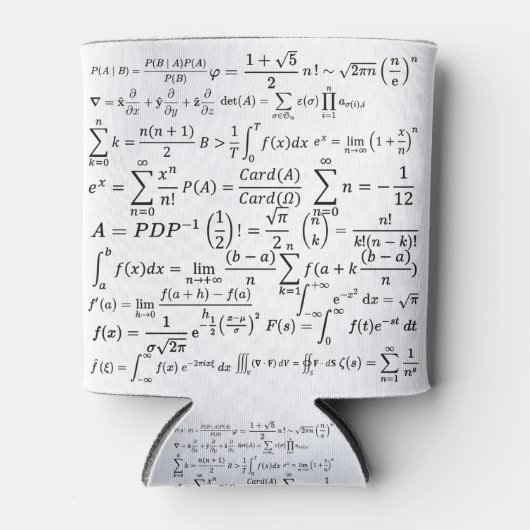 P(A | B) = P(B | A)P(A) / P(B) φ = (1 + √5) / 2 n! ∼ √(2πn) (n/e)^n
∇ = x̂ ∂/∂x + ŷ ∂/∂y + ẑ ∂/∂z det(A) = ∑_{σ∈𝔖_n} ε(σ) ∏_{i=1}^{n} a_{σ(i),i}
∑_{k=0}^{n} k = n(n + 1) / 2 B > 1/T ∫_0^T f(x)dx e^x = lim_{n→∞} (1 + x/n)^n
e^x = ∑_{n=0}^{∞} x^n / n! P(A) = Card(A) / Card(Ω) ∑_{n=0}^{∞} n = − 1/12
A = PDP^{−1} (1/2)! = √π / 2 (n k) = n! / k!(n − k)!
∫_a^b f(x)dx = lim_{n→+∞} (b − a)/n ∑_{k=1}^{n} f(a + k (b − a)/n)
f′(a) = lim_{h→0} f(a + h) − f(a) / h ∫_{−∞}^{+∞} e^{−x²} dx = √π
f(x) = 1 / σ√2π e^{−½((x−μ)/σ)²} F(s) = ∫_0^∞ f(t)e^{−st} dt
f̂(ξ) = ∫_{−∞}^{∞} f(x) e^{−2πixξ} dx ∭_V (∇ · F) dV = ∯_S F · dS ζ(s) = ∑_{n=1}^{∞} 1/n^s
P(A | B) = P(B | A)P(A) / P(B) φ = (1 + √5) / 2 n! ∼ √(2πn) (n/e)^n
∇ = x̂ ∂/∂x + ŷ ∂/∂y + ẑ ∂/∂z det(A) = ∑_{σ∈𝔖_n} ε(σ) ∏_{i=1}^{n} a_{σ(i),i}
∑_{k=0}^{n} k = n(n + 1) / 2 B > 1/T ∫_0^T f(x)dx e^x = lim_{n→∞} (1 + x/n)^n
Card(A) ∑ 1